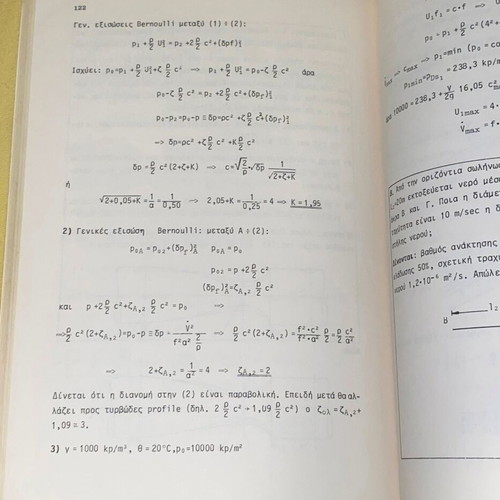 122
Γεν. εξισώσεις Bernoulli μεταξύ (1) ÷ (2):
p₁ + ρ/2 U₁² = p₂ + 2 ρ/2 c² + (δpf)₁²
Ισχύει: p₀ = p₁ + ρ/2 U₁² + ζ ρ/2 c² ⟹ p₁ + ρ/2 U₁² = p₀ - ζ ρ/2 c² άρα
p₀ - ζ ρ/2 c² = p₂ + 2 ρ/2 c² + (δp_Γ)₁²
p₀ - p₂ = p₀ - p ≡ δp = ρc² + ζ ρ/2 c² + (δp_Γ)₁²
⟹ δp = ρc² + ζ ρ/2 c² + K ρ/2 c²
δp = ρ/2 c² (2+ζ+K) ⟹ c = √(2/ρ) · √δp 1/√(2+ζ+K)
ή
√(2+0,05+K) = 1/a = 1/0,50 ⟹ 2,05+K = 1/0,25 = 4 ⟹ K = 1,95
2) Γενικές εξισώση Bernoulli: μεταξύ A ÷ (2):
p₀A = p₀₂ + (δp_Γ)A² p₀A = p₀
p₀₂ = p + 2 ρ/2 c²
(δp_Γ)A² = ζA,₂ ρ/2 c²
και p + 2 ρ/2 c² + ζA,₂ ρ/2 c² = p₀ ⟹
⟹ ρ/2 c² (2+ζA,₂) = p₀ - p ≡ δp = V̇²/(f²a² 2/ρ) ⟹ ρ/2 c² (2+ζA,₂) = f²·c²/f²·a² ρ/2 = ρ/2 c²/a²
⟹ 2+ζA,₂ = 1/a² = 4 ⟹ ζA,₂ = 2
Δίνεται ότι η διανομή στην (2) είναι παραβολική. Επειδή μετά θα αλ-
λάζει προς τυρβώδες profile (δηλ. 2 ρ/2 c² → 1,09 ρ/2 c²) ο ζολ = ζA,₂ +
1,09 = 3.
3) γ = 1000 kp/m³, θ = 20°C, p₀ = 10000 kp/m²
U₁f₁ = c·f ⟹
p₀ = p₂ + ρ/2 c² (4²+
⟹ cmax → p₁ = min (p₀ = co
p₁min = pD₀₁ = 238,3 kp/m
10000 = 238,3 + γ/2g 16,05 c²m
U₁max = 4·
V̇max = f·
Από την οριζόντια σωλήνωσ
=20m εκτοξεύεται νερό μέσ
B και Γ. Ποια η διάμε
ταχύτητα είναι 10 m/sec η δ
νερού;
Δίνονται: βαθμός ανάκτησης
50%, σχετική τραχ
νερού 1,2·10⁻⁶ m²/s. Απώλε
l₂
B